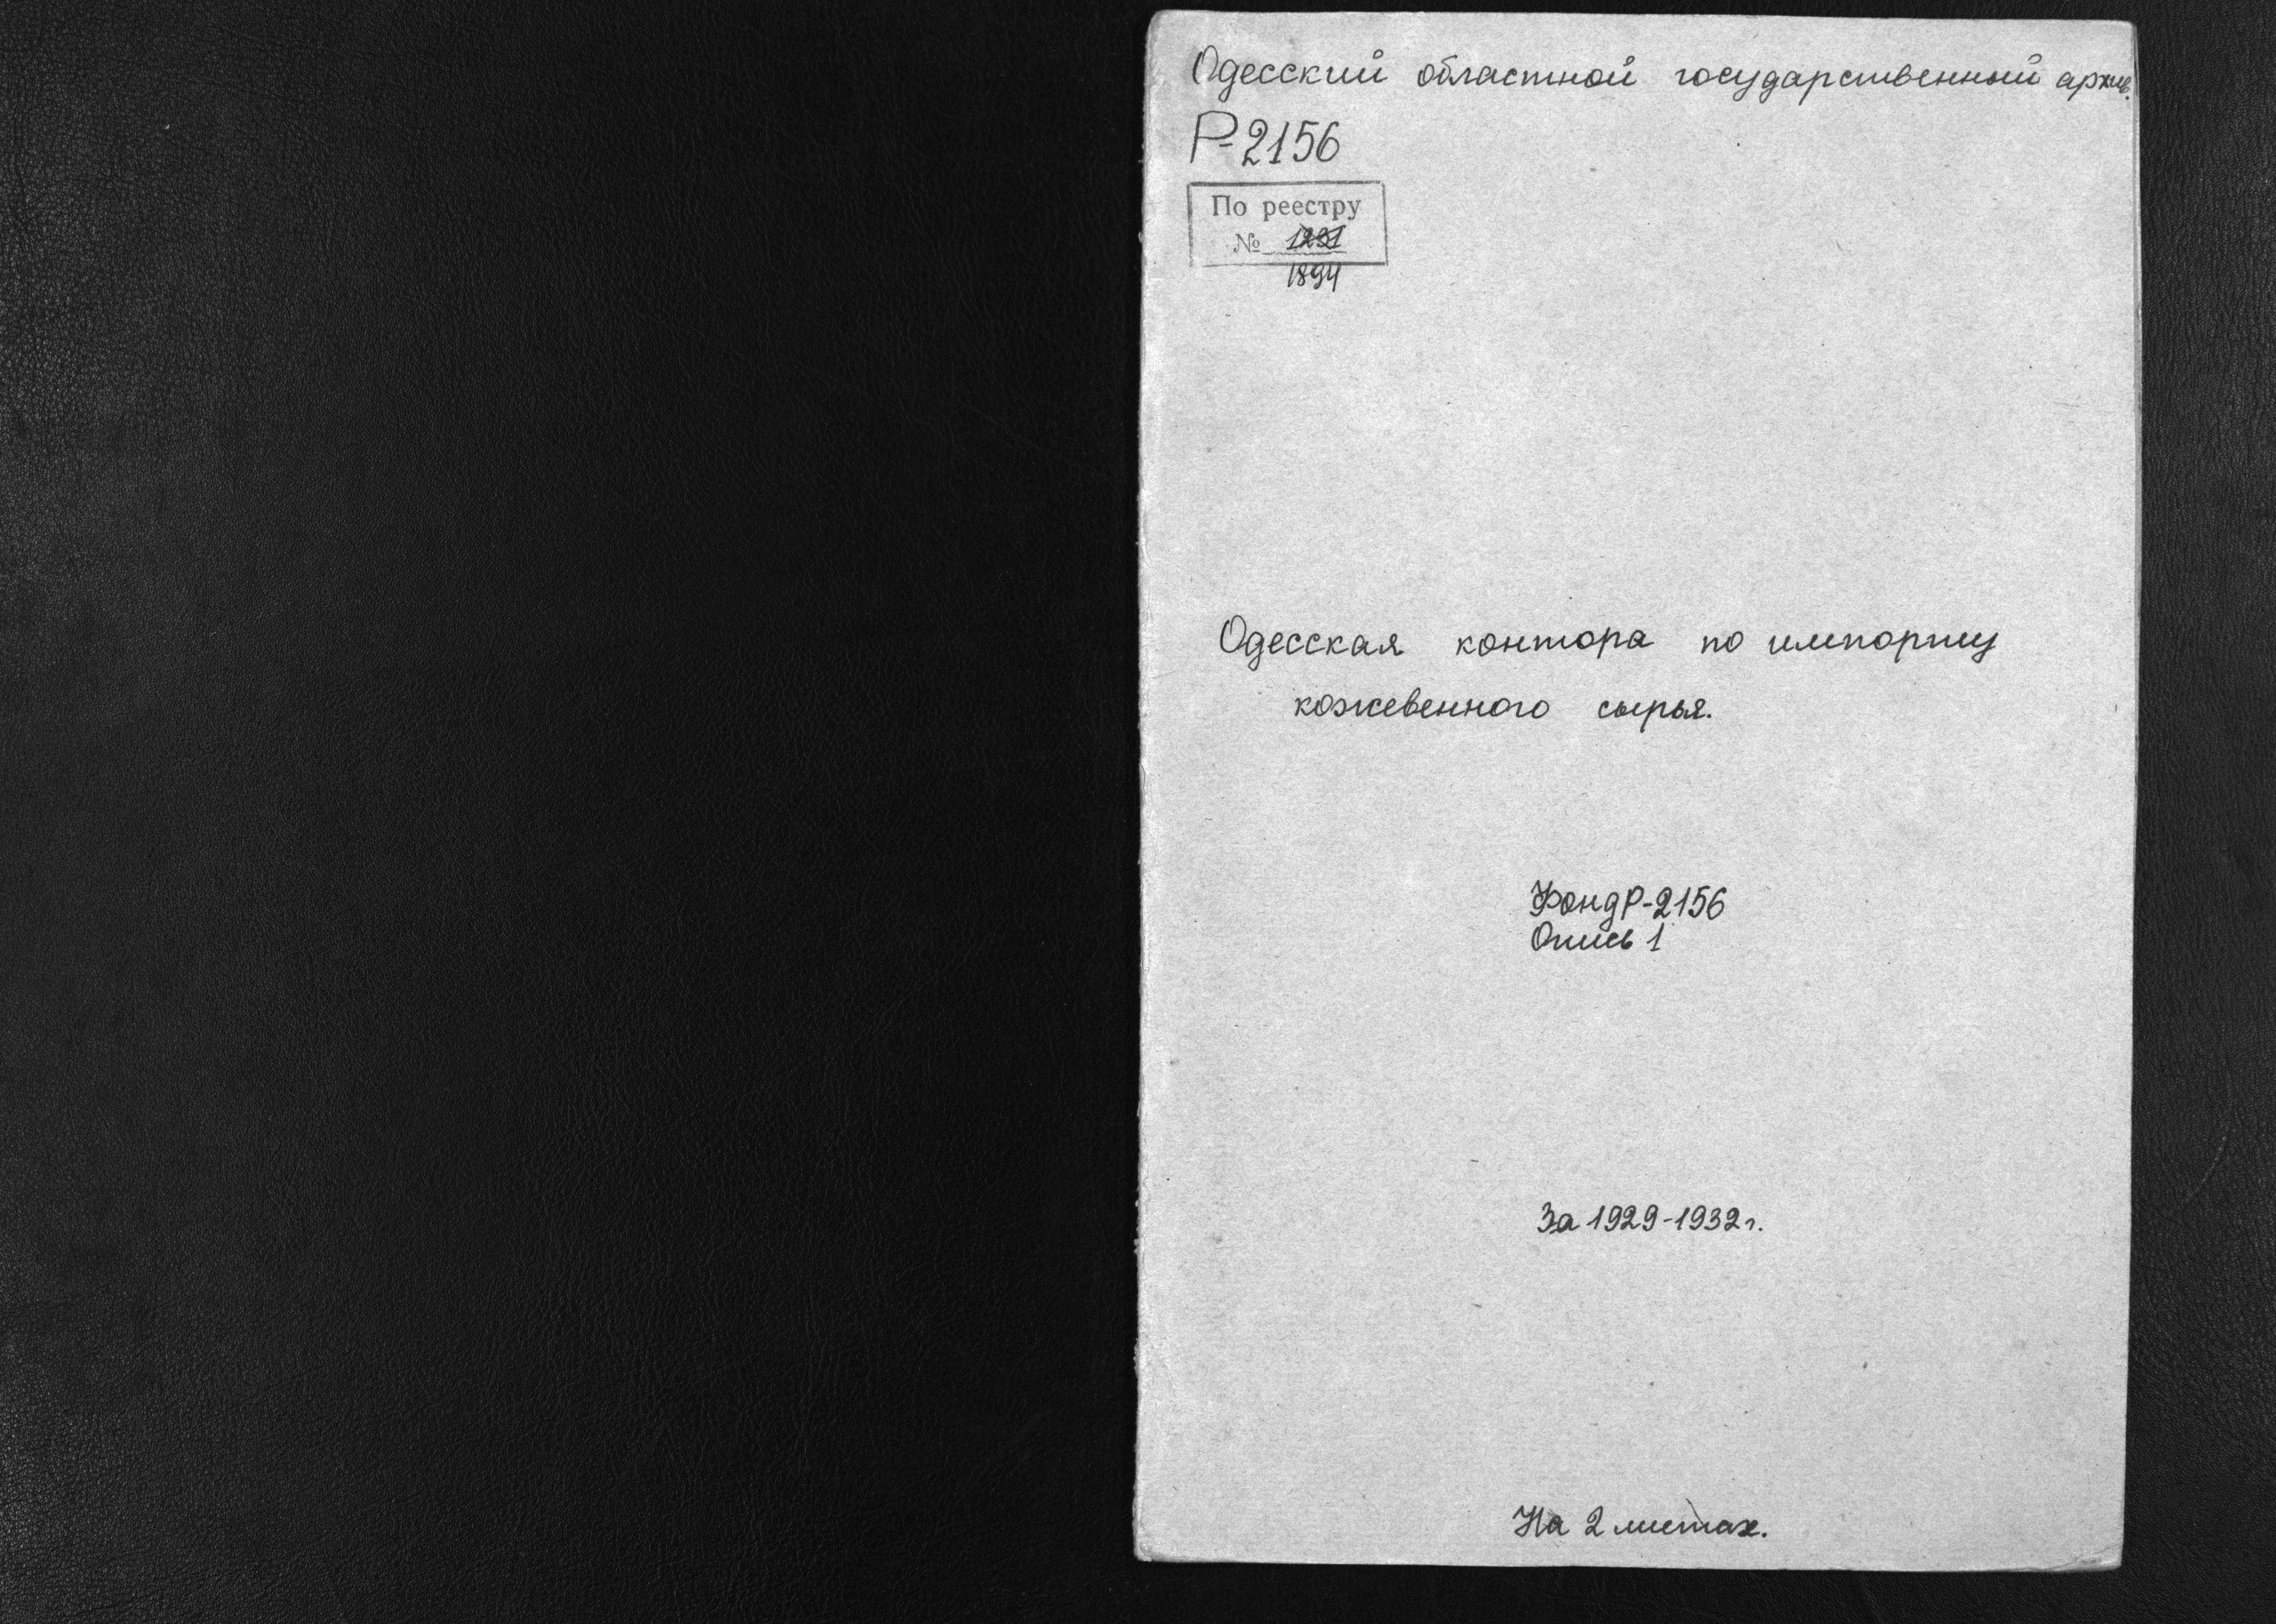 Одесский областной государственный архив.
Р-2156
По реестру
№ 1231
1894
Одесская контора по импорту
кожевенного сырья.
Фонд Р-2156
Опись 1
За 1929-1932 г.
На 2 листах.